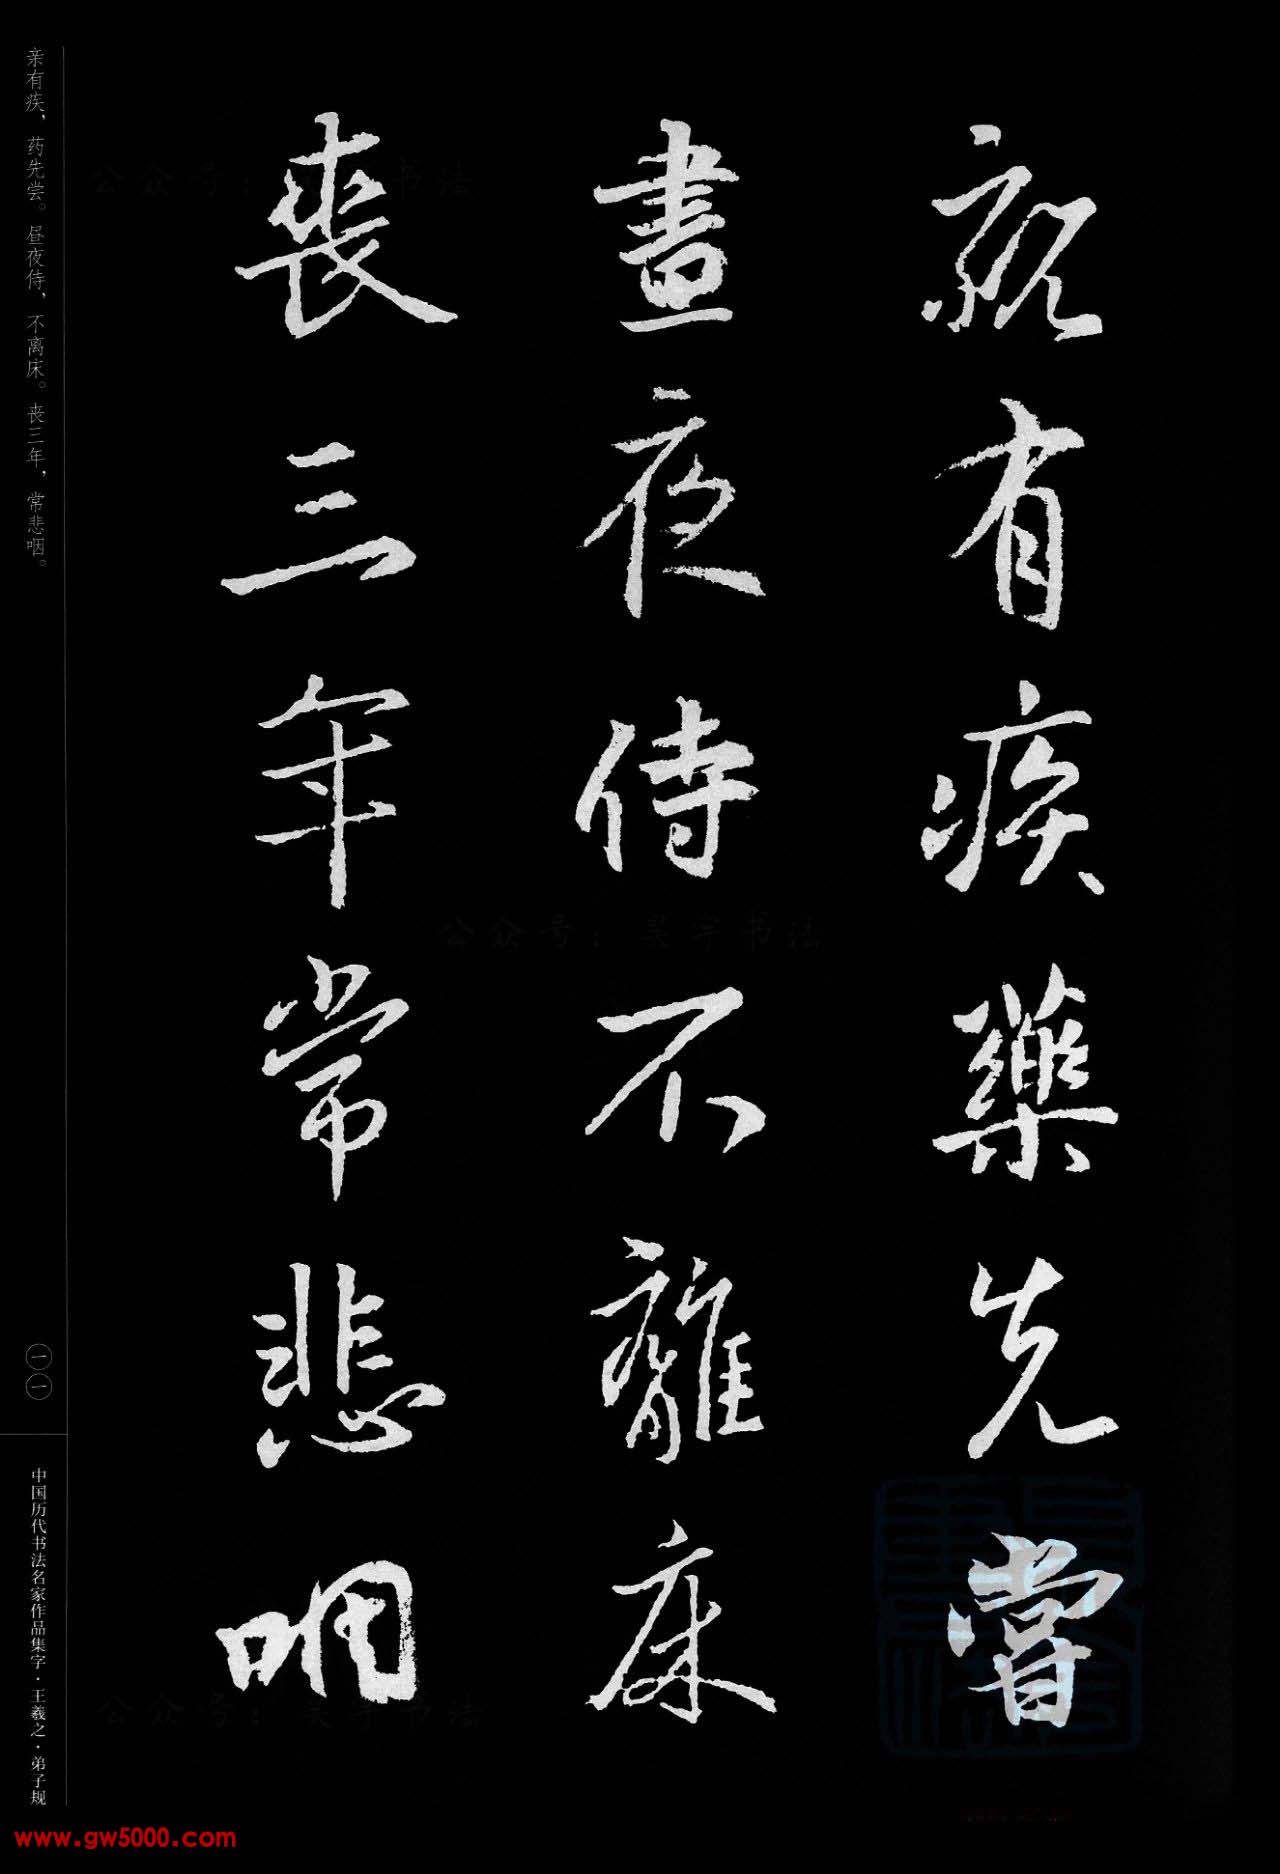 親有疾藥先嘗
晝夜侍不離床
喪三年常悲咽
亲有疾，药先尝。昼夜侍，不离床。丧三年，常悲咽。
一一
中国历代书法名家作品集字·王羲之·弟子规
公众号：昊宇书法
www.gw5000.com